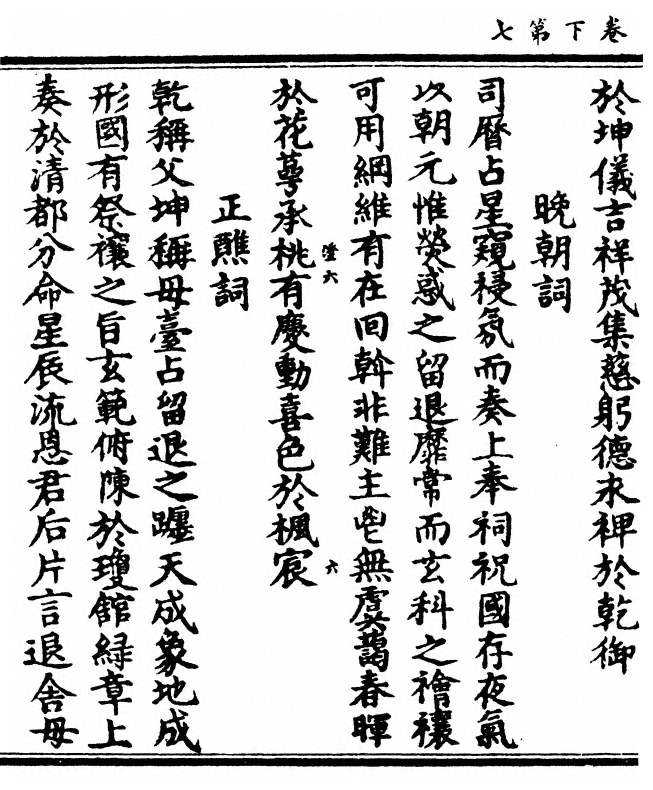 卷下第七
於坤儀吉祥茂集慈躬德永裨於乾御
晩朝詞
司曆占星窺祲氛而奏上奉祠祝國存夜氣
以朝元惟熒惑之留退靡常而玄科之禬禳
可用綱維有在回斡非難主鬯無虞藹春暉
於花萼承桃有慶動喜色於楓宸
正醮詞
乾稱父坤稱母臺占留退之躔天成象地成
形國有祭禳之旨玄範俯陳於瓊館緑章上
奏於清都分命星辰流恩君后片言退舍毋